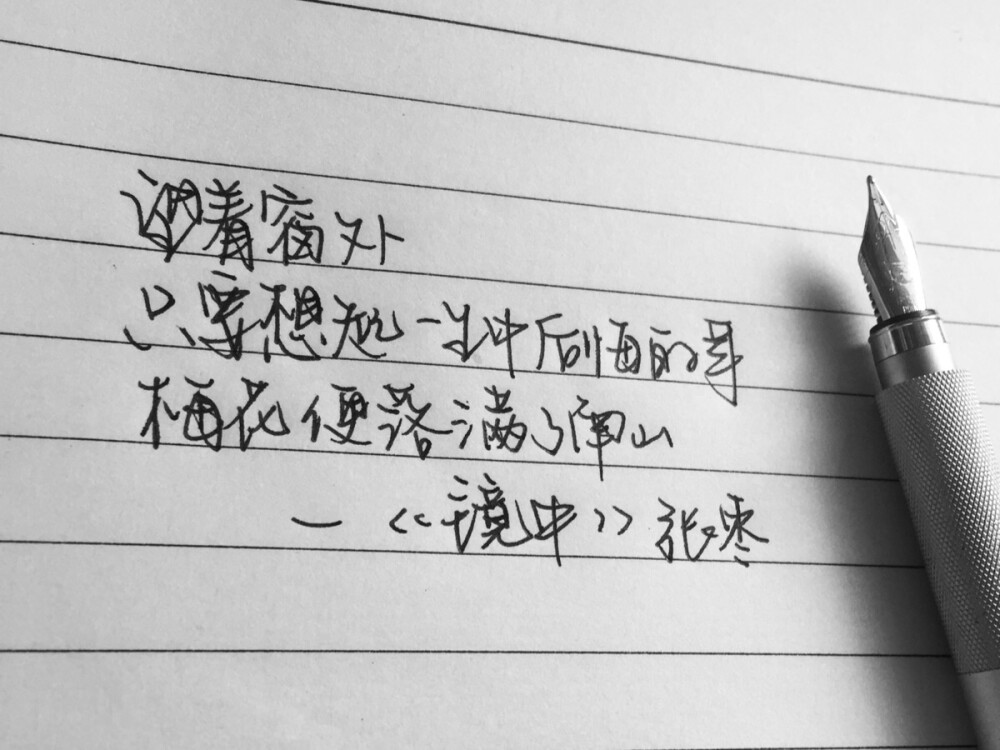 着窗外
只要想起一生中后悔的事
梅花便落满了南山
—《镜中》张枣